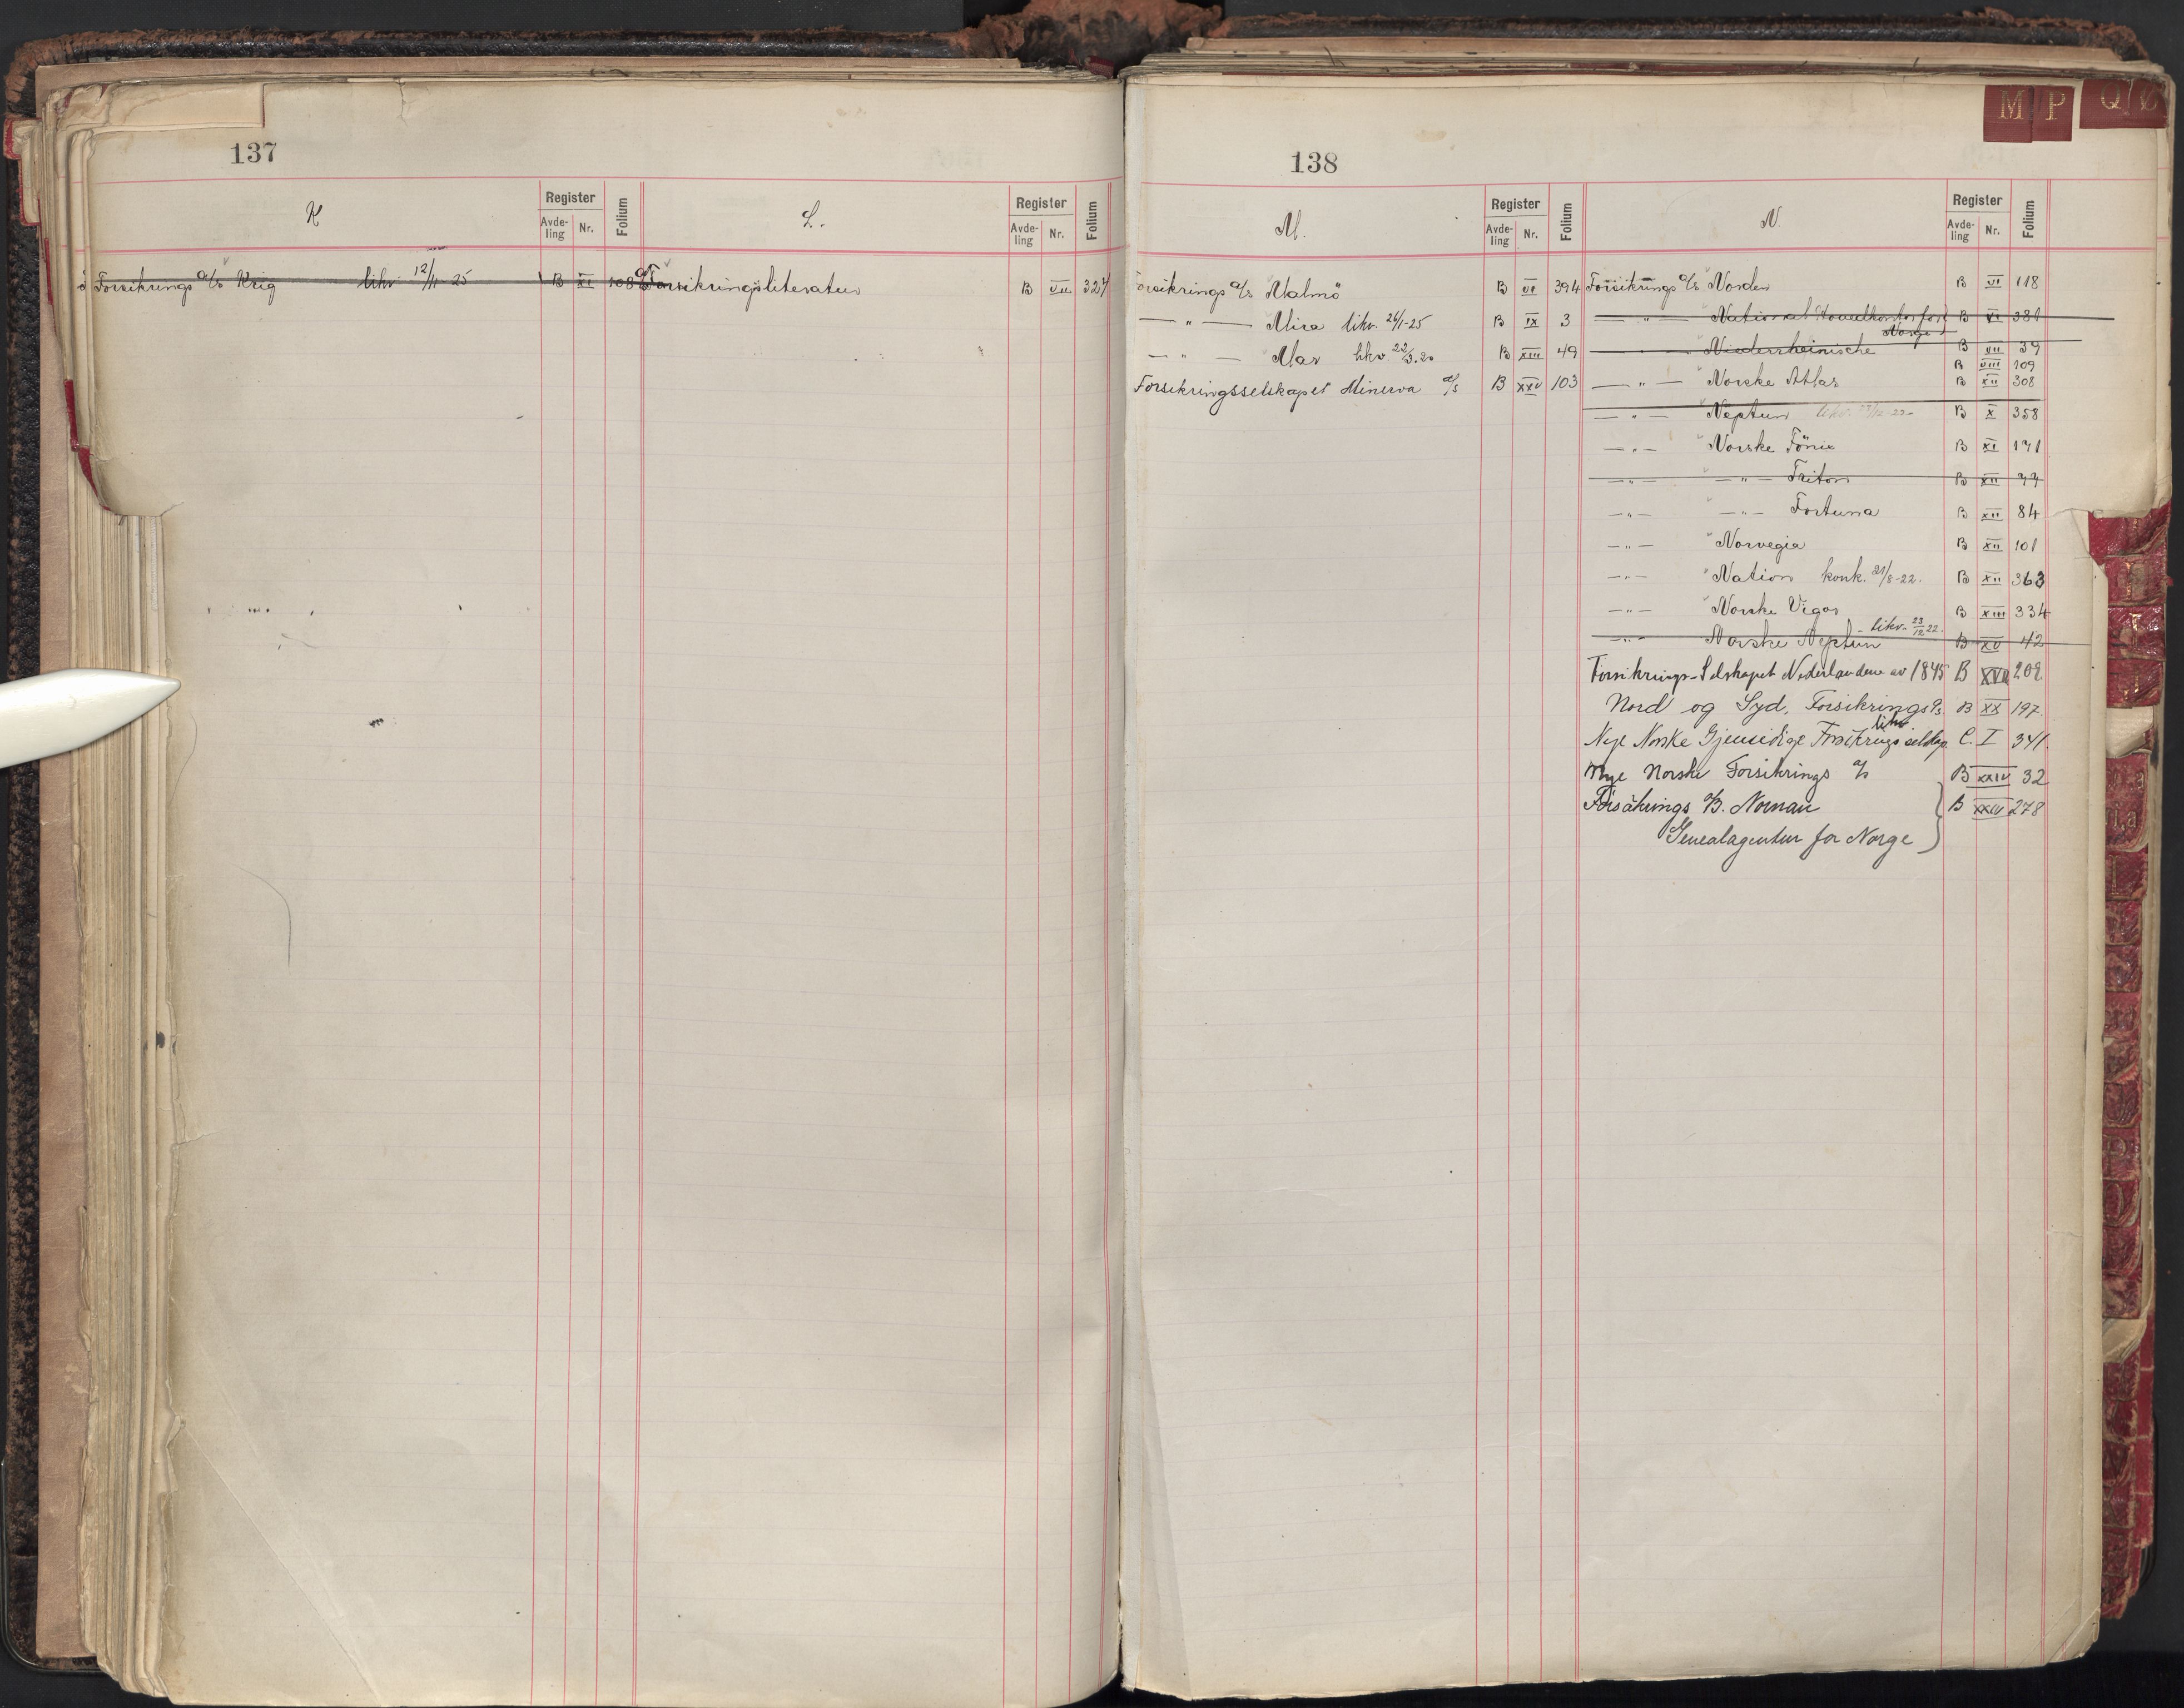 137
K
Register
Avde-
ling
Nr.
Folium
Forsikrings a/s Krig likv 12/11-25 B XI 108
L.
Register
Avde-
ling
Nr.
Folium
Forsikringsliteratur B VII 327
138
M P Q Ø
M.
Register
Avde-
ling
Nr.
Folium
Forsikrings a/s Malmö B VI 394
—"— Mira likv. 26/1-25 B IX 3
—"— Mar likv. 22/3.20 B XIII 49
Forsikringsselskapet Minerva a/s B XXV 103
N.
Register
Avde-
ling
Nr.
Folium
Forsikrings a/s Norden B VI 118
—"— National (Hovedkontor for B VI 381
Norge)
—"— Niederrheinische B VII 39
B VIII 109
—"— Norske Atlas B XII 308
—"— Neptun likv. 23/12-22 B X 358
—"— Norske Fönix B XI 171
—"— —"— Triton B XII 77
—"— —"— Fortuna B XII 84
—"— Norvegia B XII 101
—"— Nation konk. 21/8-22. B XII 363
—"— Norske Vigor B XIII 334
—"— Norske Neptun - likv. 23/12 22. B XV 42
Forsikrings-Selskapet Nederlandene av 1845 B XVII 202
Nord og Syd, Forsikrings a/s B XX 197
Nye Norske Gjensidige Forsikringsselskap likv C. I 341.
Nye Norske Forsikrings a/s B XXIV 32
Försäkrings a/B. Nornan } B XXIV 278
Generalagentur for Norge